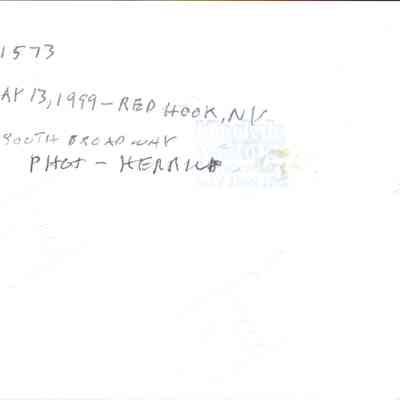 1573
AY 13, 1999 - RED HOOK, NY
SOUTH BROADWAY
PHOT - HERRICK